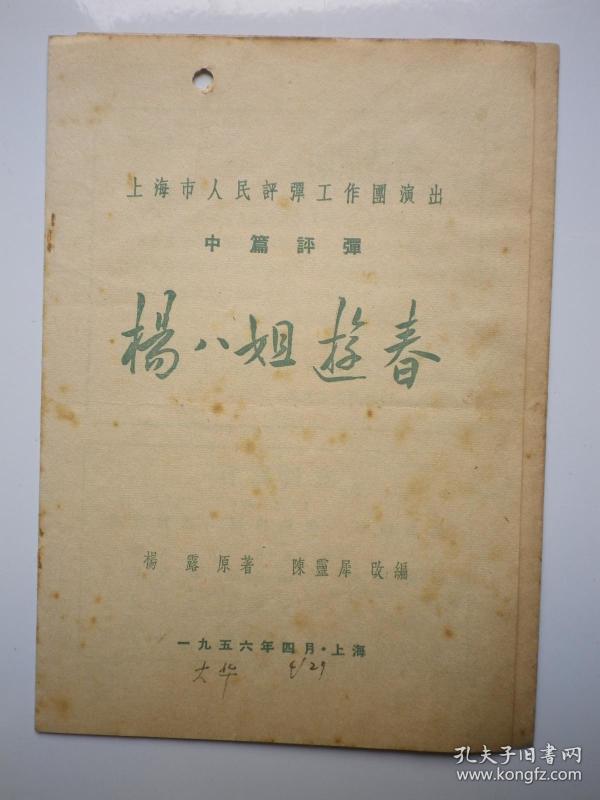 上海市人民評彈工作團演出
中篇評彈
楊八姐遊春
楊露原著 陳靈犀改編
一九五六年四月·上海
大华 4/29
孔夫子旧书网
www.kongfz.com